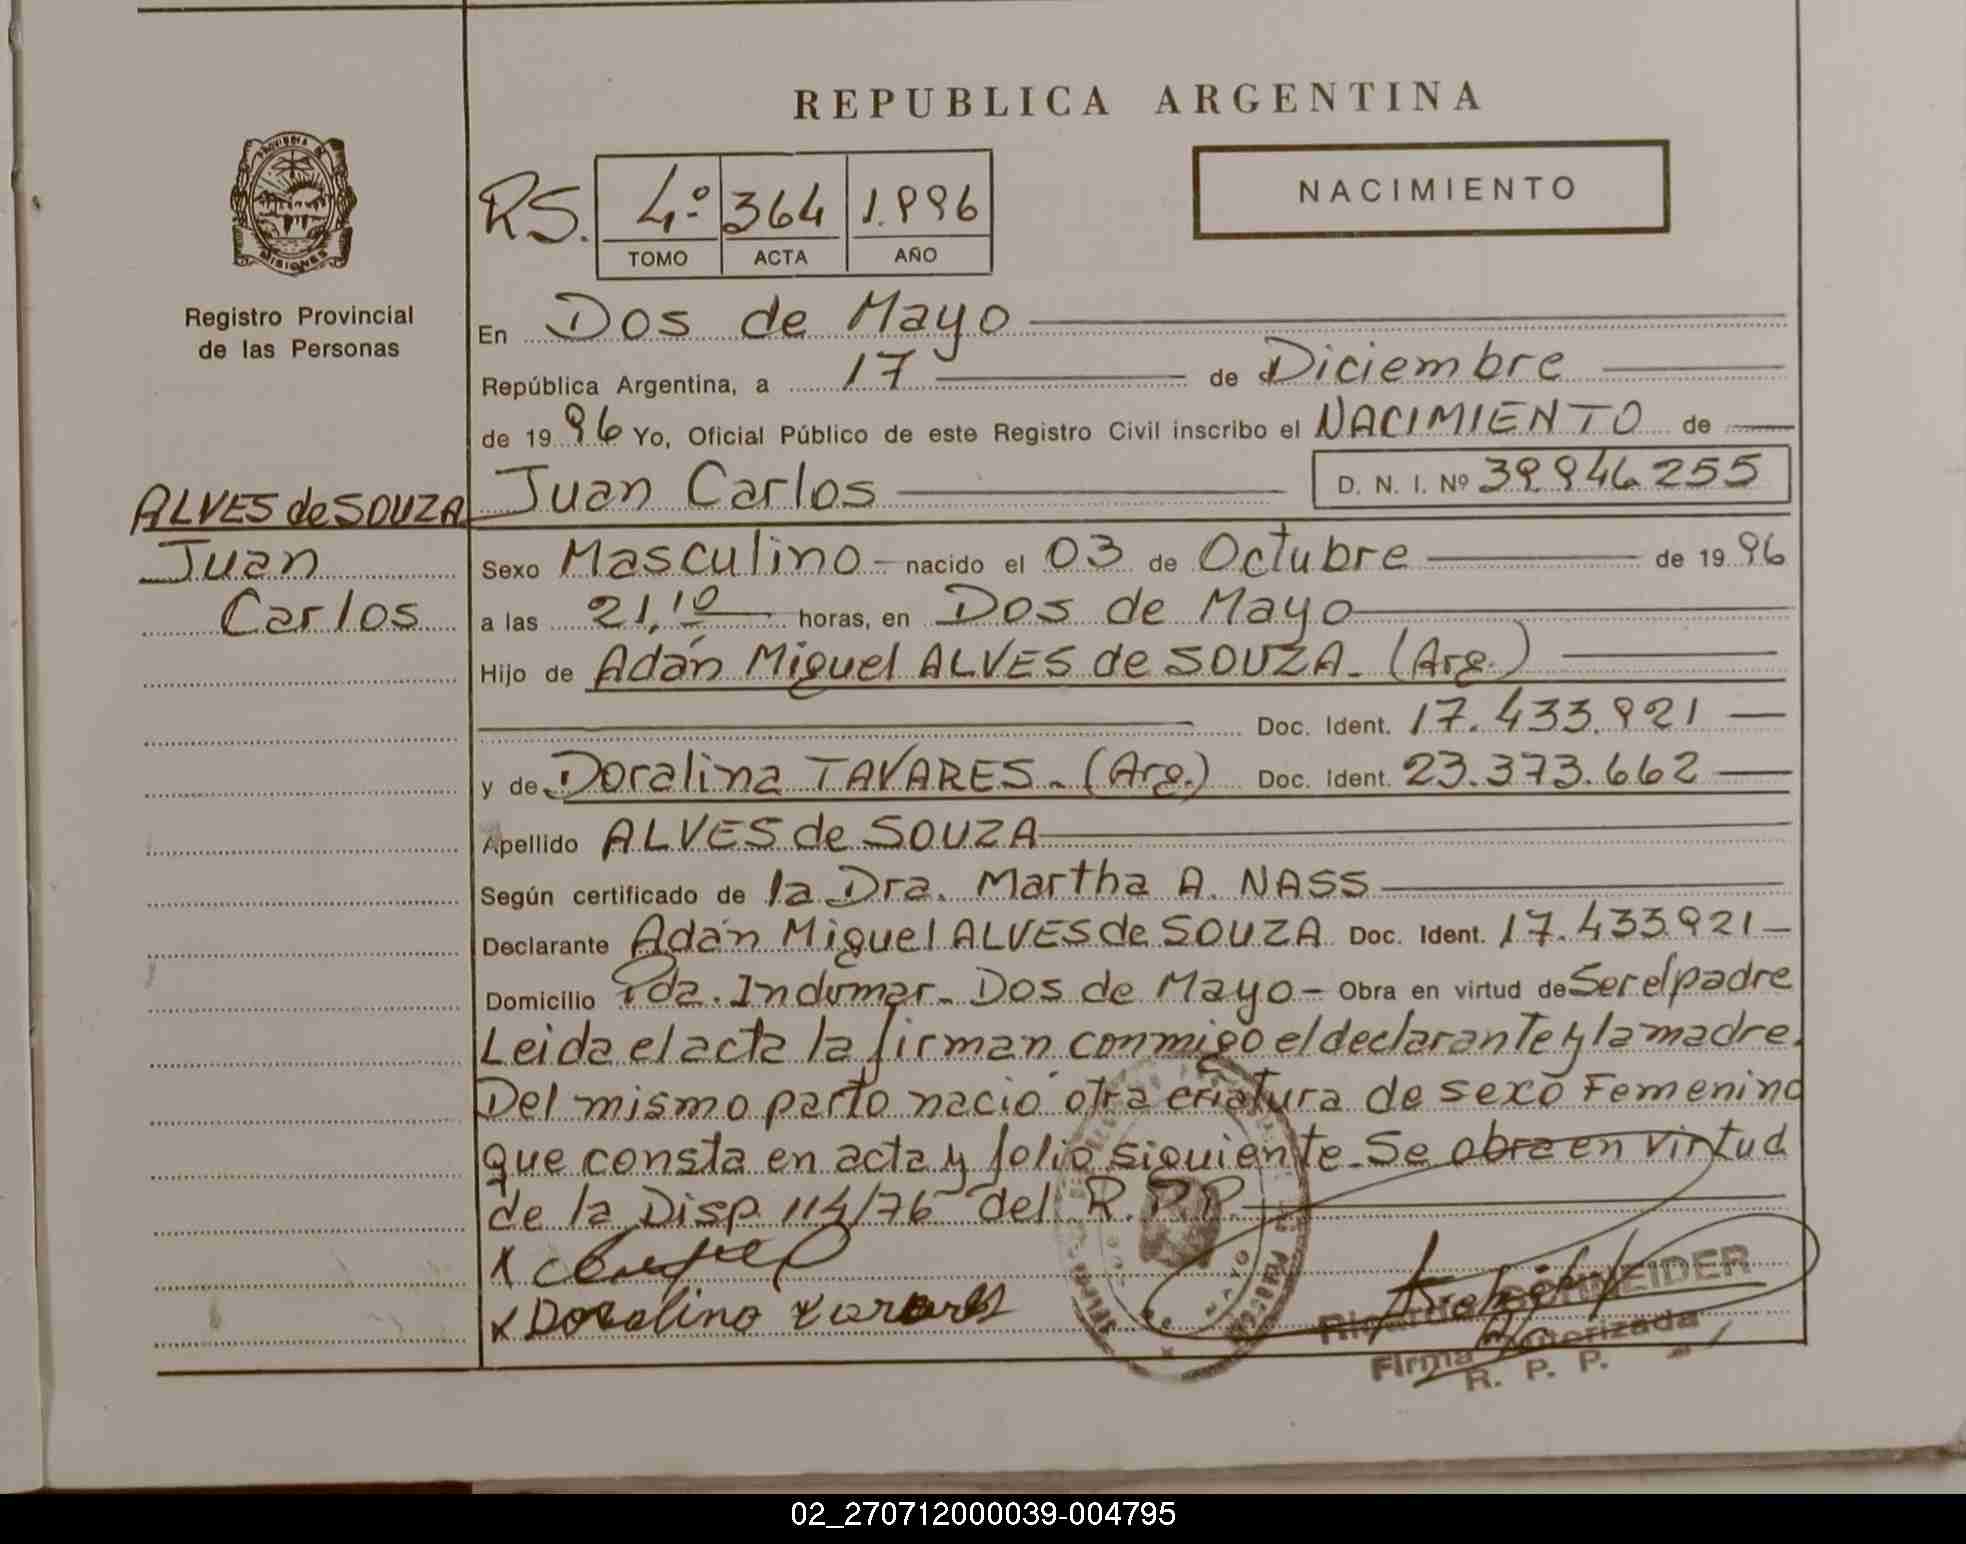 REPUBLICA ARGENTINA
PROVINCIA DE
MISIONES
Registro Provincial
de las Personas
RS. 4º 364 1.996
TOMO ACTA AÑO
NACIMIENTO
En Dos de Mayo
República Argentina, a 17 de Diciembre
de 1996 Yo, Oficial Público de este Registro Civil inscribo el NACIMIENTO de
Juan Carlos D. N. I. Nº 39.946.255
ALVES de SOUZA
Juan
Carlos
Sexo Masculino nacido el 03 de Octubre de 1996
a las 21,10 horas, en Dos de Mayo
Hijo de Adán Miguel ALVES de SOUZA. (Arg.)
Doc. Ident. 17.433.921
y de Doralina TAVARES. (Arg.) Doc. Ident. 23.373.662
Apellido ALVES de SOUZA
Según certificado de la Dra. Martha A. NASS
Declarante Adán Miguel ALVES de SOUZA Doc. Ident. 17.433.921
Domicilio Pda. Indumar. Dos de Mayo - Obra en virtud de Ser el padre
Leida el acta la firman conmigo el declarante y la madre.
Del mismo parto nació otra criatura de sexo Femenino
que consta en acta y folio siguiente. Se obra en virtud
de la Disp. 114/76 del R.P.P.
x
x Doralino
Ricardo SCHNEIDER
Firma Autorizada
R. P. P.
02_270712000039-004795